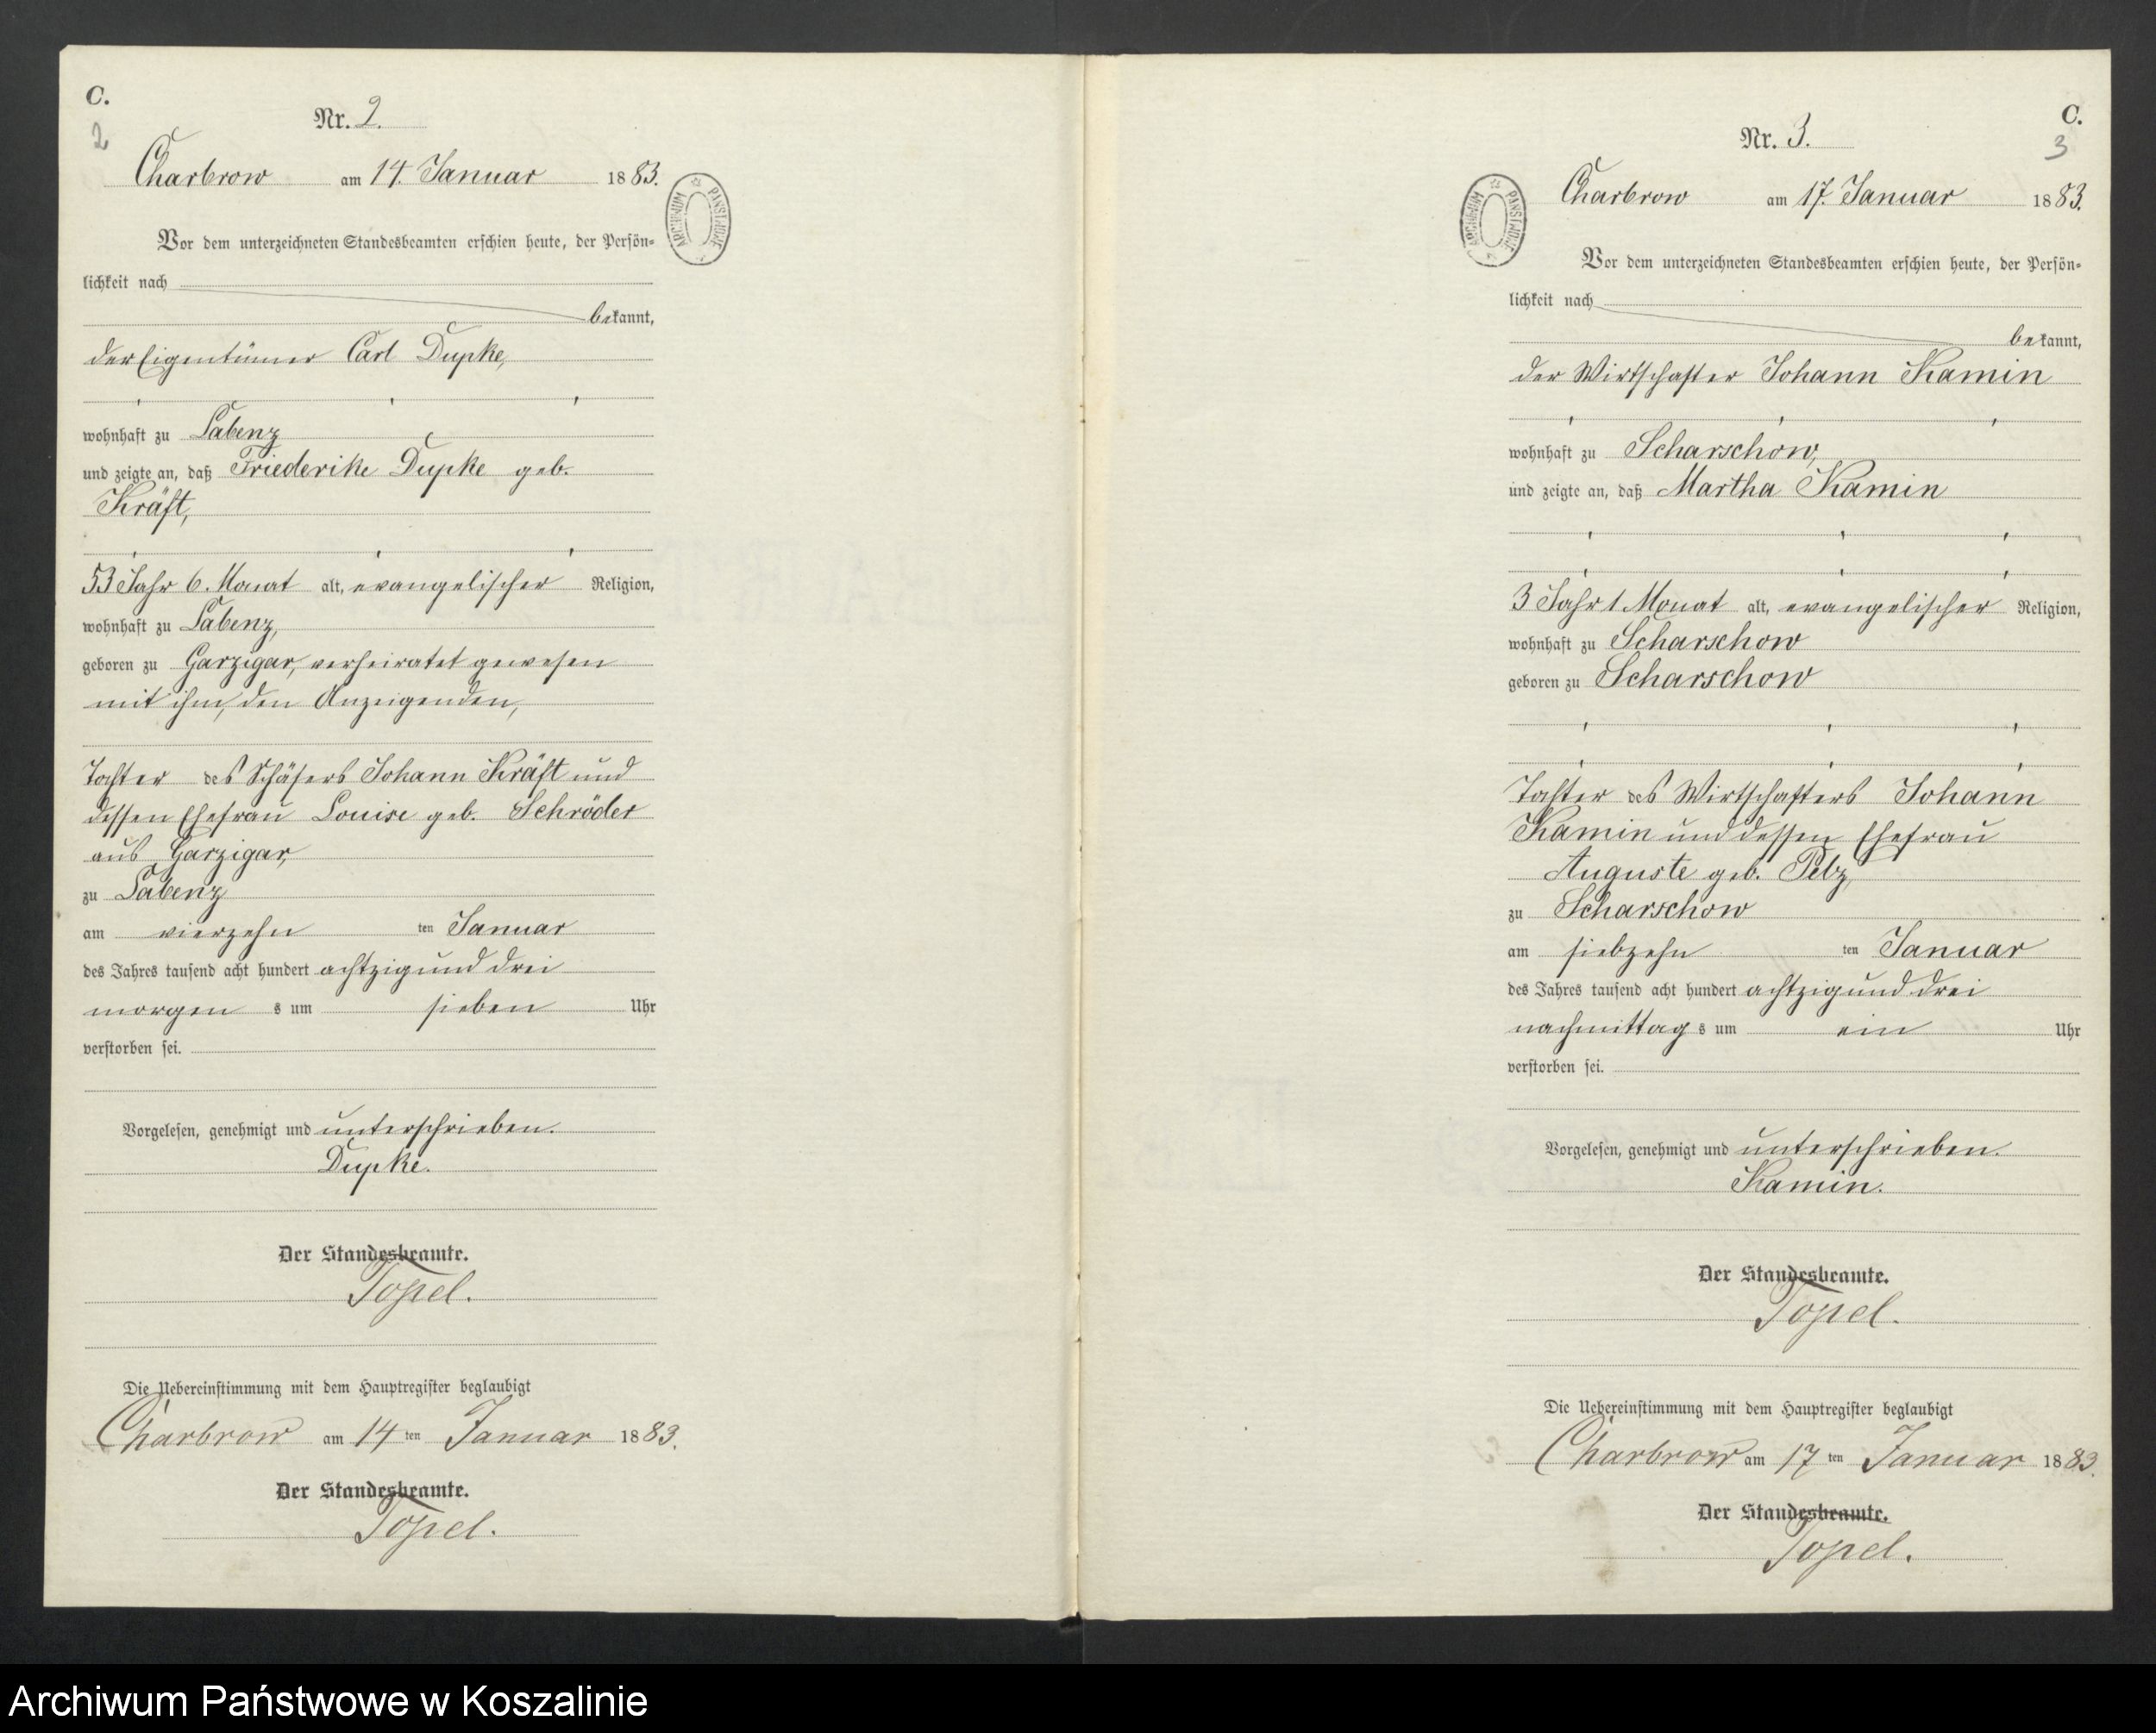 C.
2
Nr. 2.
Charbrow am 14. Januar 1883.
ARCHIWUM PAŃSTWOWE
Vor dem unterzeichneten Standesbeamten erschien heute, der Persön-
lichkeit nach
bekannt,
der Eigentümer Carl Dupke,
wohnhaft zu Labenz
und zeigte an, daß Friederike Dupke geb.
Kräft,
53 Jahr 6. Monat alt, evangelischer Religion,
wohnhaft zu Labenz,
geboren zu Garzigar, verheiratet gewesen
mit ihm, den Anzeigenden,
Tochter des Schäfers Johann Kräft und
dessen Ehefrau Louise geb. Schröder
aus Garzigar,
zu Labenz
am vierzehn ten Januar
des Jahres tausend acht hundert achtzig und drei
morgen s um sieben Uhr
verstorben sei.
Vorgelesen, genehmigt und unterschrieben.
Dupke.
Der Standesbeamte.
Topel.
Die Uebereinstimmung mit dem Hauptregister beglaubigt
Charbrow am 14 ten Januar 1883.
Der Standesbeamte.
Topel.
C.
3
Nr. 3.
Charbrow am 17. Januar 1883.
ARCHIWUM PAŃSTWOWE
Vor dem unterzeichneten Standesbeamten erschien heute, der Persön-
lichkeit nach
bekannt,
der Wirtschafter Johann Kamin
wohnhaft zu Scharschow,
und zeigte an, daß Martha Kamin
3 Jahr 1 Monat alt, evangelischer Religion,
wohnhaft zu Scharschow
geboren zu Scharschow
Tochter des Wirtschafters Johann
Kamin und dessen Ehefrau
Auguste geb. Pelz,
zu Scharschow
am siebzehn ten Januar
des Jahres tausend acht hundert achtzig und drei
nachmittag s um ein Uhr
verstorben sei.
Vorgelesen, genehmigt und unterschrieben.
Kamin.
Der Standesbeamte.
Topel.
Die Uebereinstimmung mit dem Hauptregister beglaubigt
Charbrow am 17 ten Januar 1883.
Der Standesbeamte.
Topel.
Archiwum Państwowe w Koszalinie